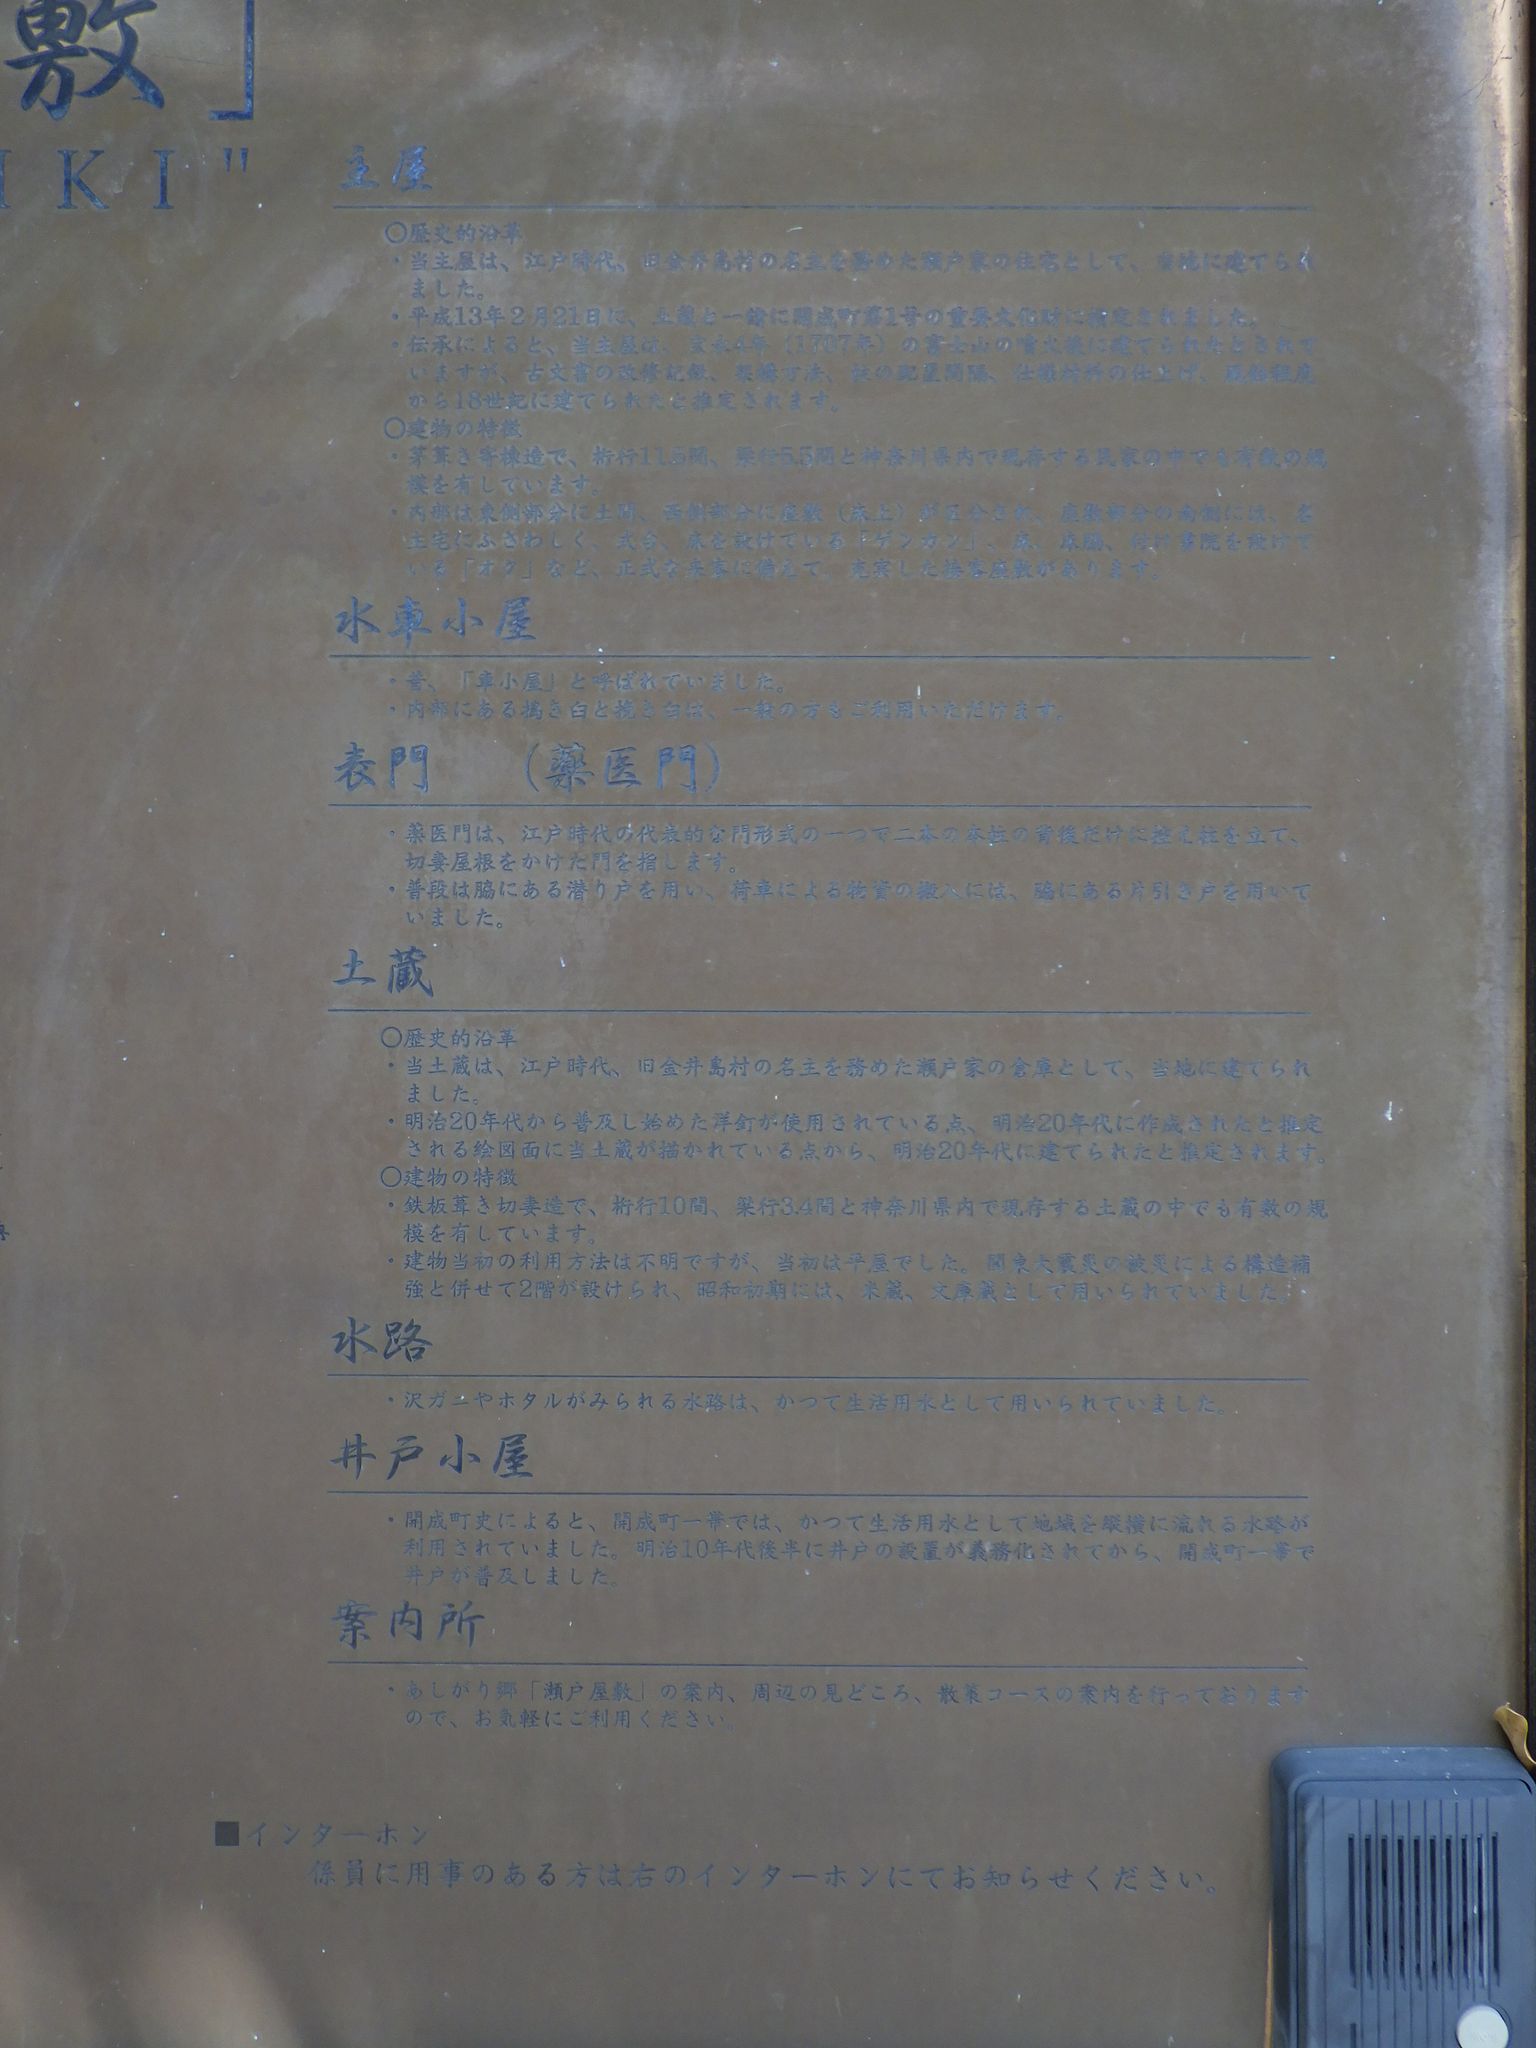 敷」
IKI"
主屋
〇歴史的沿革
・当主屋は、江戸時代、旧金井島村の名主を務めた瀬戸家の住宅として、当地に建てられ
ました。
・平成13年2月21日に、土蔵と一緒に開成町第1号の重要文化財に指定されました。
・伝承によると、当主屋は、宝永4年（1707年）の富士山の噴火後に建てられたとされて
いますが、古文書の改修記録、架構寸法、柱の配置間隔、仕様材料の仕上げ、風蝕程度
から18世紀に建てられたと推定されます。
〇建物の特徴
・茅葺き寄棟造で、桁行11.5間、梁行5.5間と神奈川県内で現存する民家の中でも有数の規
模を有しています。
・内部は東側部分に土間、西側部分に座敷（床上）が区分され、座敷部分の南側には、名
主宅にふさわしく、式台、床を設けている「ゲンカン」、床、床脇、付け書院を設けて
いる「オク」など、正式な来客に備えて、充実した接客座敷があります。
水車小屋
・昔、「車小屋」と呼ばれていました。
・内部にある搗き臼と挽き臼は、一般の方もご利用いただけます。
表門　（薬医門）
・薬医門は、江戸時代の代表的な門形式の一つで二本の本柱の背後だけに控え柱を立て、
切妻屋根をかけた門を指します。
・普段は脇にある潜り戸を用い、荷車による物資の搬入には、脇にある片引き戸を用いて
いました。
土蔵
〇歴史的沿革
・当土蔵は、江戸時代、旧金井島村の名主を務めた瀬戸家の倉庫として、当地に建てられ
ました。
・明治20年代から普及し始めた洋釘が使用されている点、明治20年代に作成されたと推定
される絵図面に当土蔵が描かれている点から、明治20年代に建てられたと推定されます。
〇建物の特徴
・鉄板葺き切妻造で、桁行10間、梁行3.4間と神奈川県内で現存する土蔵の中でも有数の規
模を有しています。
・建物当初の利用方法は不明ですが、当初は平屋でした。関東大震災の被災による構造補
強と併せて2階が設けられ、昭和初期には、米蔵、文庫蔵として用いられていました。
水路
・沢ガニやホタルがみられる水路は、かつて生活用水として用いられていました。
井戸小屋
・開成町史によると、開成町一帯では、かつて生活用水として地域を縦横に流れる水路が
利用されていました。明治10年代後半に井戸の設置が義務化されてから、開成町一帯で
井戸が普及しました。
案内所
・あしがり郷「瀬戸屋敷」の案内、周辺の見どころ、散策コースの案内を行っております
ので、お気軽にご利用ください。
■インターホン
係員に用事のある方は右のインターホンにてお知らせください。